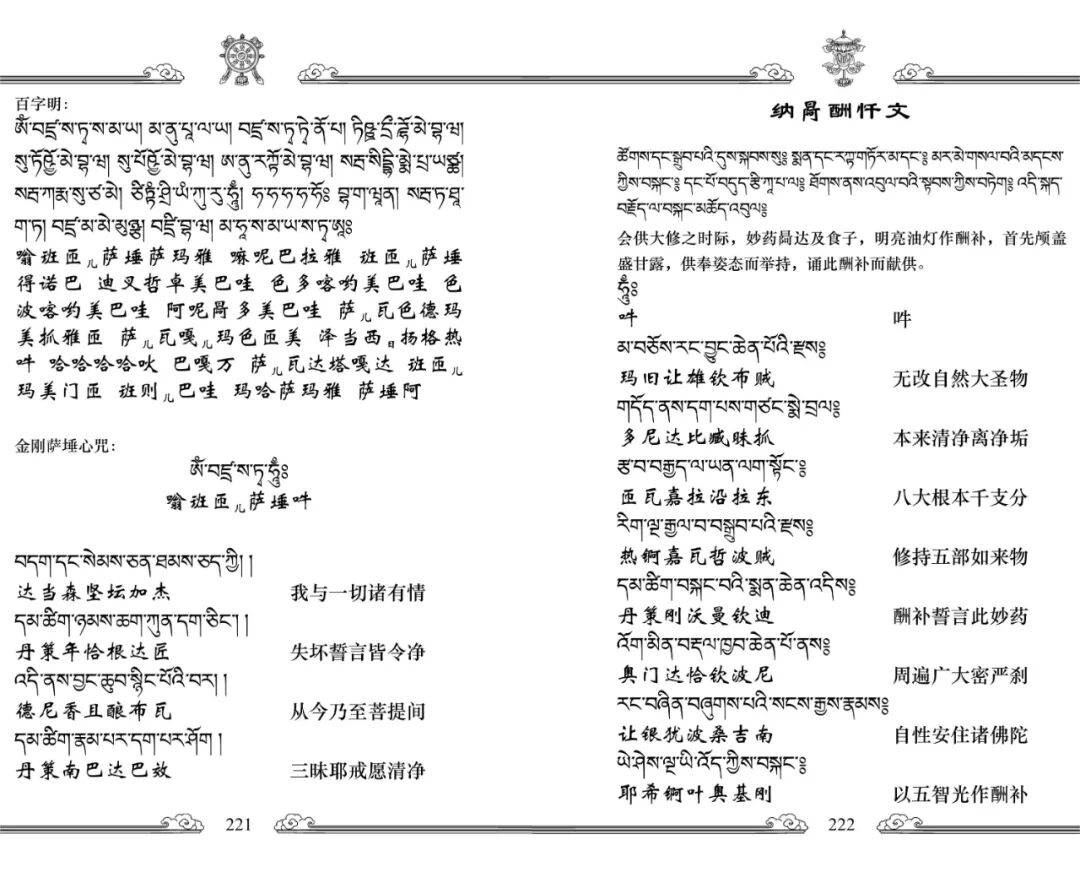 百字明：
ༀ་བཛྲ་ས་ཏྭ་ས་མ་ཡ། མ་ནུ་པཱ་ལ་ཡ། བཛྲ་ས་ཏྭ་ཏྭེ་ནོ་པ། ཏིཥྛ་དྲྀ་ཌྷོ་མེ་བྷ་ཝ།
སུ་ཏོཥྱོ་མེ་བྷ་ཝ། སུ་པོཥྱོ་མེ་བྷ་ཝ། ཨ་ནུ་རཀྟོ་མེ་བྷ་ཝ། སརྦ་སིདྡྷི་མྨེ་པྲ་ཡཙྪ།
སརྦ་ཀརྨ་སུ་ཙ་མེ། ཙིཏྟཾ་ཤྲི་ཡཾ་ཀུ་རུ་ཧཱུྃ། ཧ་ཧ་ཧ་ཧ་ཧོཿ བྷ་ག་ཝཱན། སརྦ་ཏ་ཐཱ་
ག་ཏ། བཛྲ་མ་མེ་མུཉྩ། བཛྲཱི་བྷ་ཝ། མ་ཧཱ་ས་མ་ཡ་ས་ཏྭ་ཨཱཿ
嗡班匝儿萨埵萨玛雅 嘛呢巴拉雅 班匝儿萨埵
得诺巴 迪叉哲卓美巴哇 色多喀哟美巴哇 色
波喀哟美巴哇 阿呢咼多美巴哇 萨儿瓦色德玛
美抓雅匝 萨儿瓦嘎儿玛色匝美 泽当西日扬格热
吽 哈哈哈哈吙 巴嘎万 萨儿瓦达塔嘎达 班匝儿
玛美门匝 班则儿巴哇 玛哈萨玛雅 萨埵阿
金刚萨埵心咒：
ༀ་བཛྲ་ས་ཏྭ་ཧཱུྃ༔
嗡班匝儿萨埵吽
བདག་དང་སེམས་ཅན་ཐམས་ཅད་ཀྱི། །
达当森坚坛加杰 我与一切诸有情
དམ་ཚིག་ཉམས་ཆག་ཀུན་དག་ཅིང་། །
丹策年恰根达匠 失坏誓言皆令净
འདི་ནས་བྱང་ཆུབ་སྙིང་པོའི་བར། །
德尼香且酿布瓦 从今乃至菩提间
དམ་ཚིག་རྣམ་པར་དག་པར་ཤོག །
丹策南巴达巴效 三昧耶戒愿清净
221
纳咼酬忏文
ཚོགས་དང་སྒྲུབ་པའི་དུས་སྐབས་སུ༔ སྨན་དང་རཀྟ་གཏོར་མ་དང་༔ མར་མེ་གསལ་བའི་མདངས་
ཀྱིས་བསྐང་༔ དང་པོ་བདུད་རྩི་ཀཱ་པ་ལ༔ ཐོགས་ནས་འབུལ་བའི་སྟབས་ཀྱིས་བཏེག༔ འདི་སྐད་
བརྗོད་ལ་བསྐང་མཆོད་འབུལ༔
会供大修之时际，妙药咼达及食子，明亮油灯作酬补，首先颅盖
盛甘露，供奉姿态而举持，诵此酬补而献供。
ཧཱུྃ༔
吽 吽
མ་བཅོས་རང་བྱུང་ཆེན་པོའི་རྫས༔
玛旧让雄钦布贼 无改自然大圣物
གདོད་ནས་དག་པས་གཙང་སྨེ་བྲལ༔
多尼达比臧昧抓 本来清净离净垢
རྩ་བ་བརྒྱད་ལ་ཡན་ལག་སྟོང་༔
匝瓦嘉拉沿拉东 八大根本千支分
རིག་ལྔ་རྒྱལ་བ་བསྒྲུབ་པའི་རྫས༔
热锕嘉瓦哲波贼 修持五部如来物
དམ་ཚིག་བསྐང་བའི་སྨན་ཆེན་འདིས༔
丹策刚沃曼钦迪 酬补誓言此妙药
འོག་མིན་བརྡལ་ཁྱབ་ཆེན་པོ་ནས༔
奥门达恰钦波尼 周遍广大密严刹
རང་བཞིན་བཞུགས་པའི་སངས་རྒྱས་རྣམས༔
让银犹波桑吉南 自性安住诸佛陀
ཡེ་ཤེས་ལྔ་ཡི་འོད་ཀྱིས་བསྐང་༔
耶希锕叶奥基刚 以五智光作酬补
222